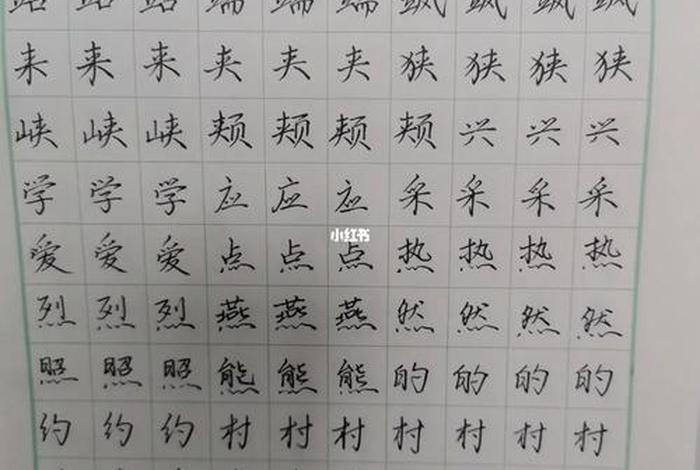 站站站端端端飒飒飒飒
来来来夹夹夹狭狭狭狭
峡峡峡颊颊颊颊兴兴兴
学学学应应应采采采采
小红书
爱爱爱点点点热热热热
烈烈烈燕燕燕然然然然
照照照熊熊熊的的的的
约约约村村村村村村村